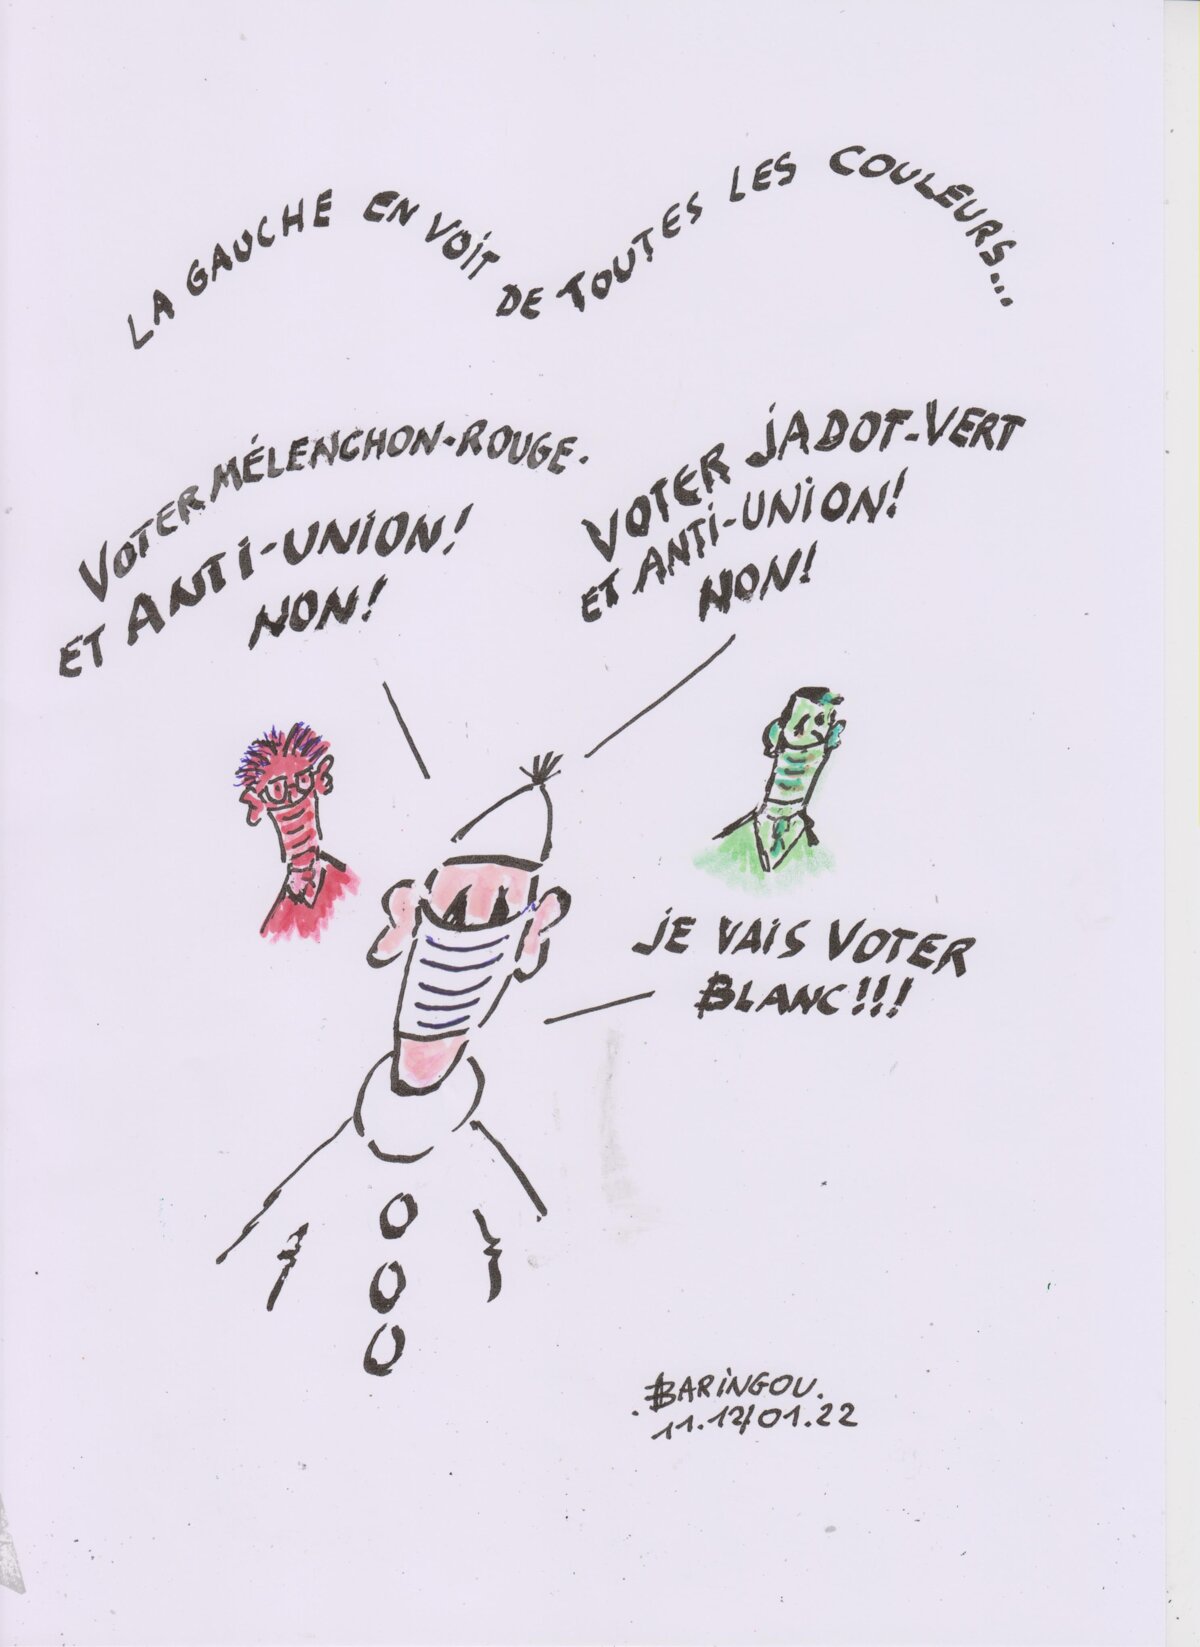 LA GAUCHE EN VOIT DE TOUTES LES COULEURS...
VOTER MÉLENCHON-ROUGE.
ET ANTI-UNION!
NON!
VOTER JADOT-VERT
ET ANTI-UNION!
NON!
JE VAIS VOTER
BLANC!!!
BARINGOU.
11.12/01.22